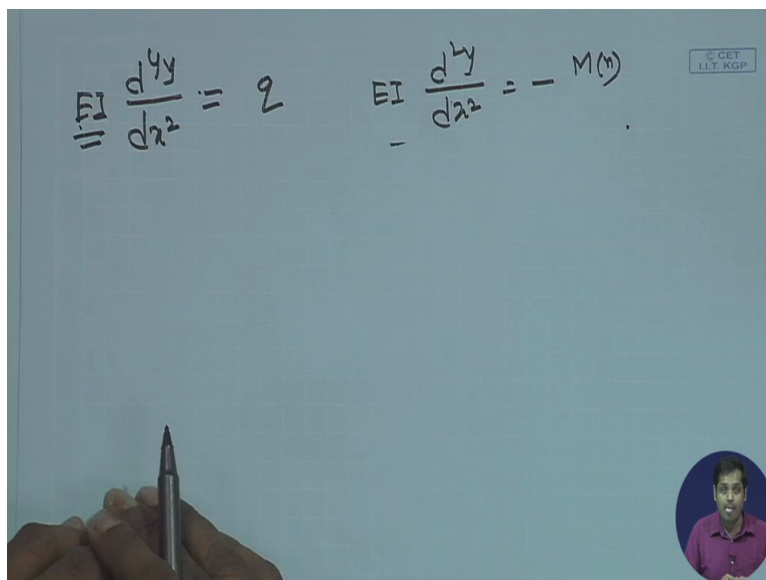 EI d⁴y/dx² = q
EI d²y/dx² = - M(x)
© CET
I.I.T. KGP